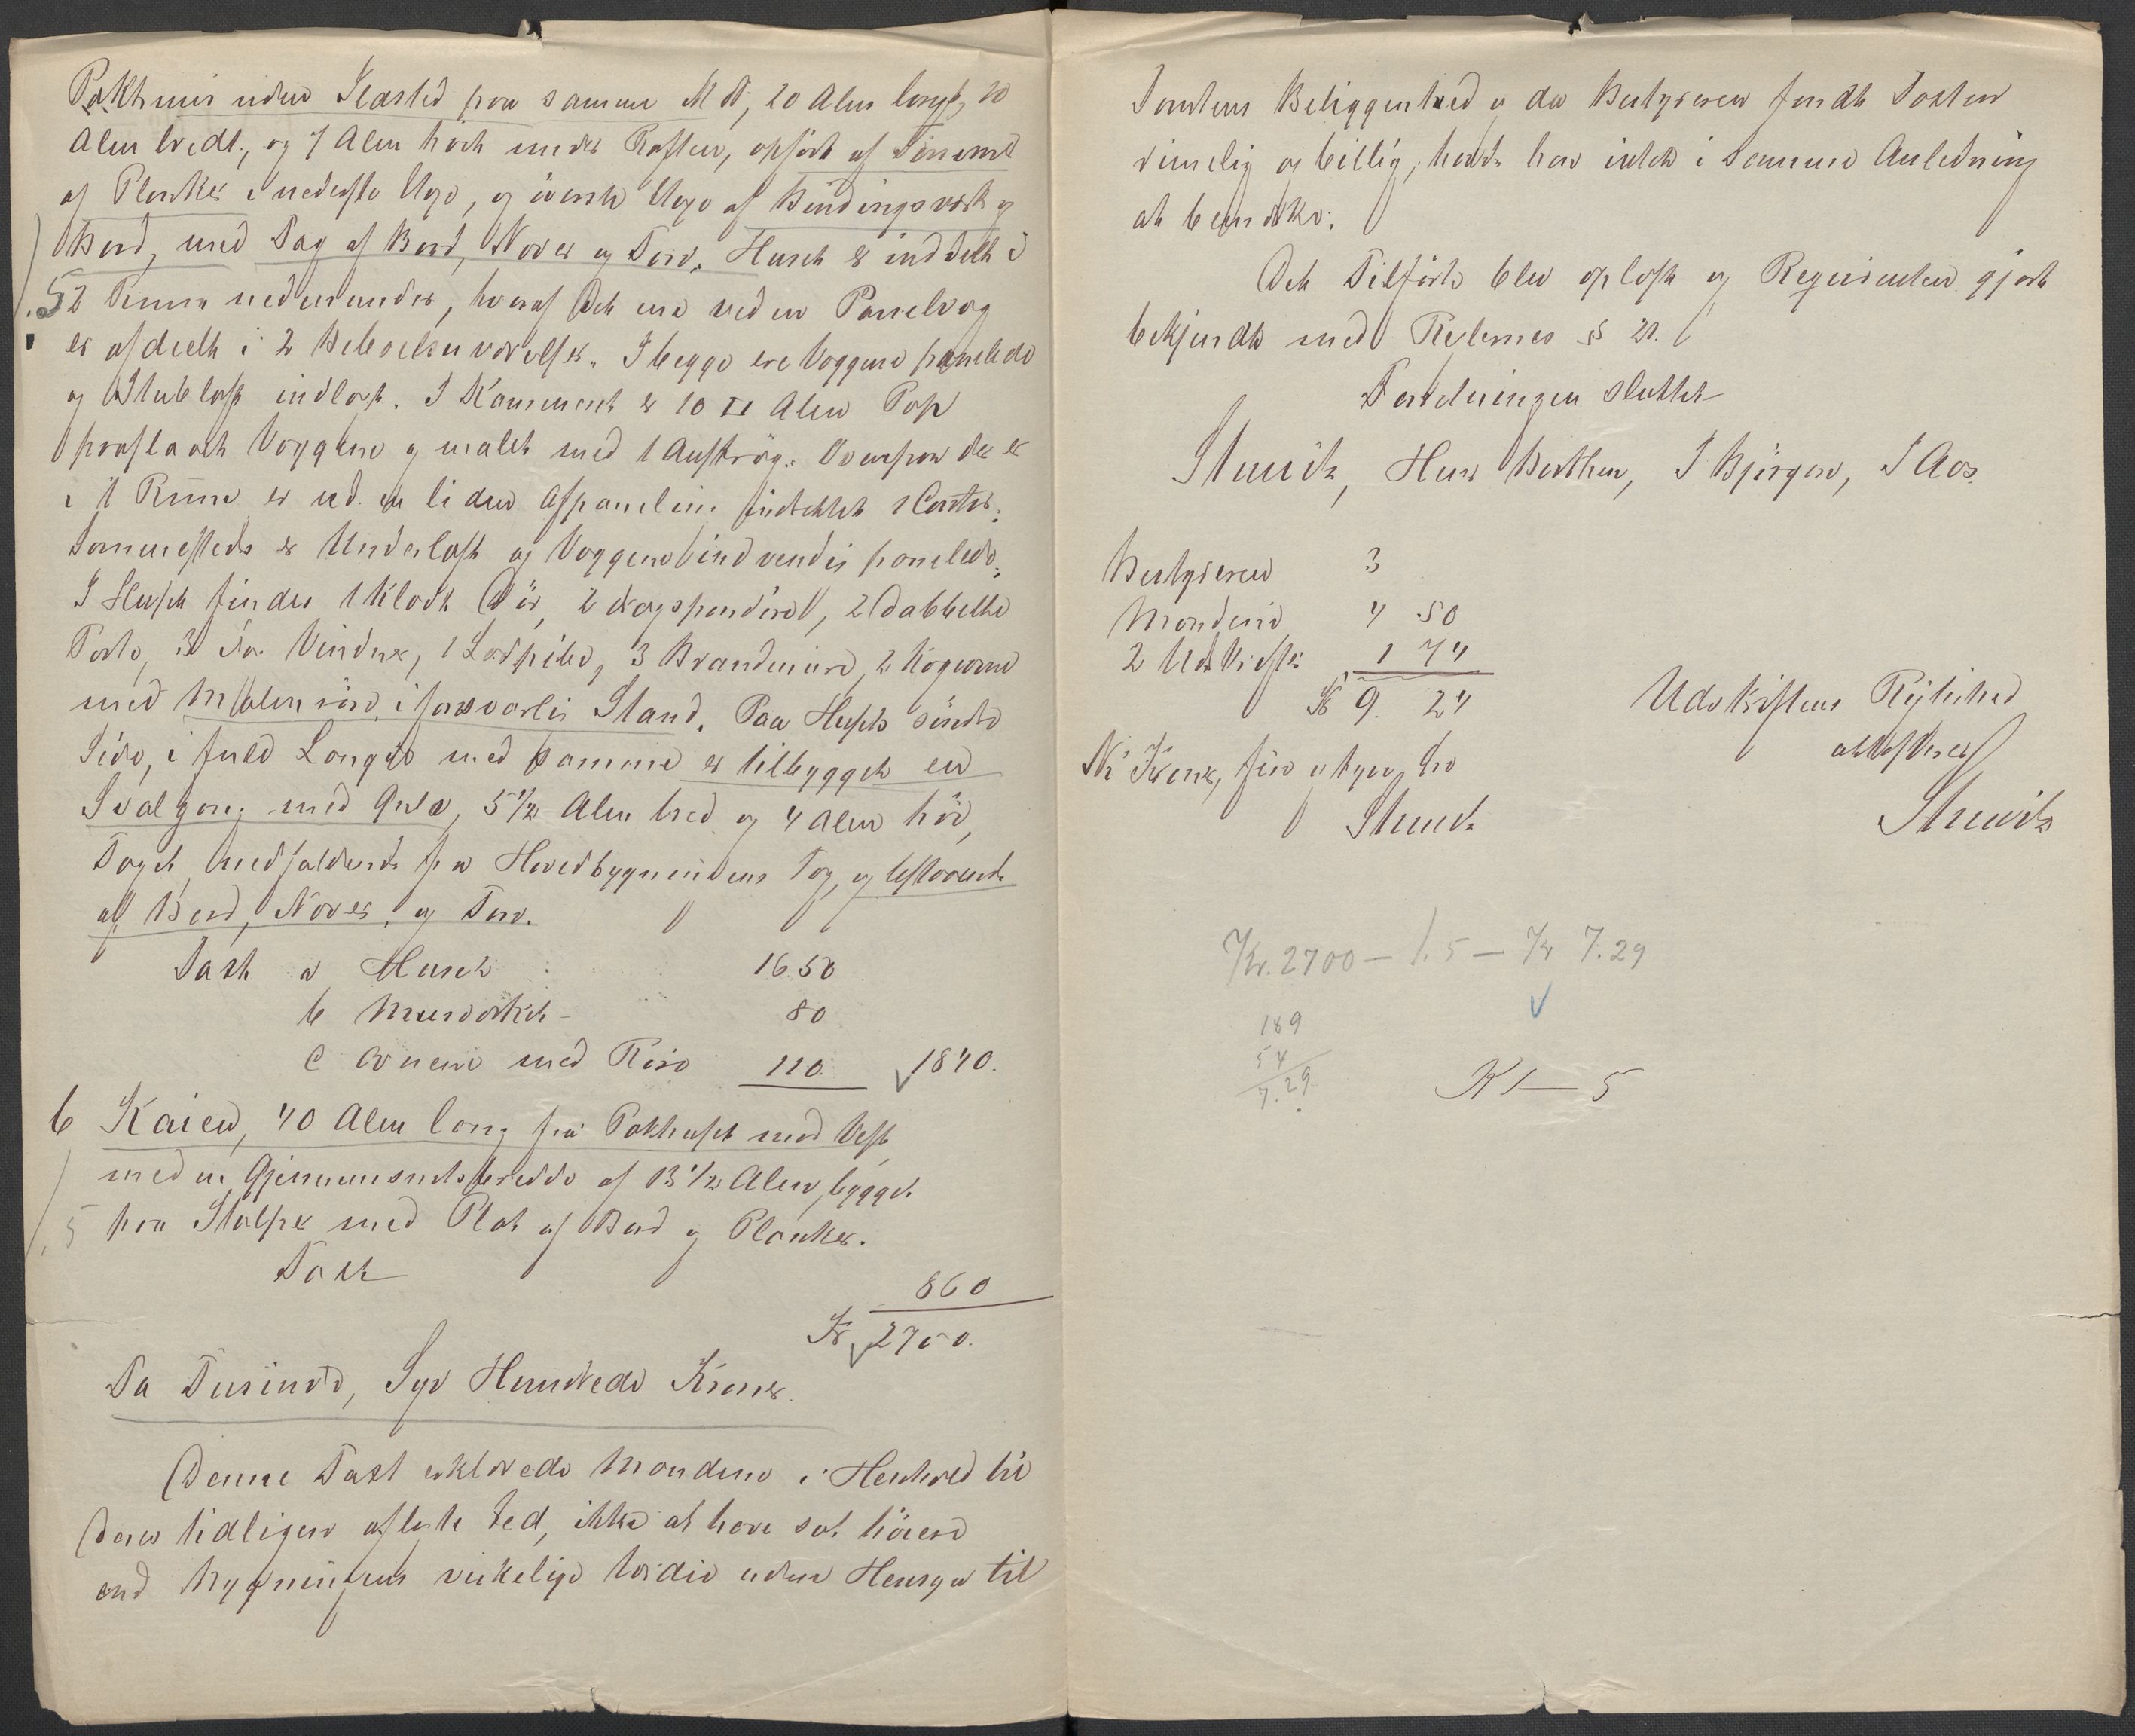 Pakhuus uden Ildsted paa samme No, 20 Alen langt, 20
Alen bredt, og 7 Alen høit under Raften, opført af Tømmer
af Planker i nederste Etage, og øverste Etage af Bindingsværk og
Bord, med Tag af Bord, Næver og Torv. Huset er inddelt i
5 2 Rum nedenunder, hvoraf det ene ved en Panelvæg
er afdeelt i 2 Beboelsesværelser. I begge ere Væggene panelede
og Stubloft indlagt. I Kammeret er 10 □ Alen Pap
paaslaaet Væggene og malet med 1 Anstrøg. Ovenpaa der er
i 1 Rum er ved en liden Afpaneling indrettet 1 Contor.
Sammesteds er Underloft og Væggene indvendig panelede.
I Huset findes 1 Klædt Dør, 2 dobbelte
Porte, 3 Vinduer, 1 Ladpibe, 3 Brandmure, 2 Kogeovne
med Malmrør, i forsvarlig Stand. Paa Husets søndre
Side, i fuld Længde med samme er tilbygget en
Svalgang med Gulv, 5 1/2 Alen bred og 4 Alen høi,
Taget nedfaldende fra Hovedbygningens Tag, og bestaaende
af Bord, Næver og Torv.
Taxt a Huset : 1650
b Murværket - 80
c Ovnene med Rør 110 1840.
b Kaien, 40 Alen lang fra Pakhuset mod Vest,
med en Gjennemsnitsbredde af 13 1/2 Alen, bygget
5 paa Stolper med Plat af Bord og Planker.
Taxt
860
Kr 2700.
To Tusinde, Syv Hundrede Kroner.
Denne Taxt erklærede Mændene i Henhold til
deres tidligere aflagte Eed, ikke at have sat høiere
end Bygningens virkelige Værdie uden Hensyn til
Tomtens Beliggenhed og da Bestyreren fandt Taxten
rimelig og billig, havde han intet i Samme Anledning
at bemærke.
Det Tilførte blev oplæst og Reqvirenten gjort
bekjendt med Reglernes § 21.
Forretningen sluttet
Stuwitz, Hans Berthen, I Bjørgen, I Aas.
Bestyreren 3
Mændene 4 50
2 Udskrifter 1 74
Kr 9. 24
Ni Kroner, fire og tyve Øre
Stuwitz
Udskriftens Rigtighed
attesterer
Stuwitz
Kr. 2700 - 1.5 - Kr 7.29
189
54
7.29
Kl - 5